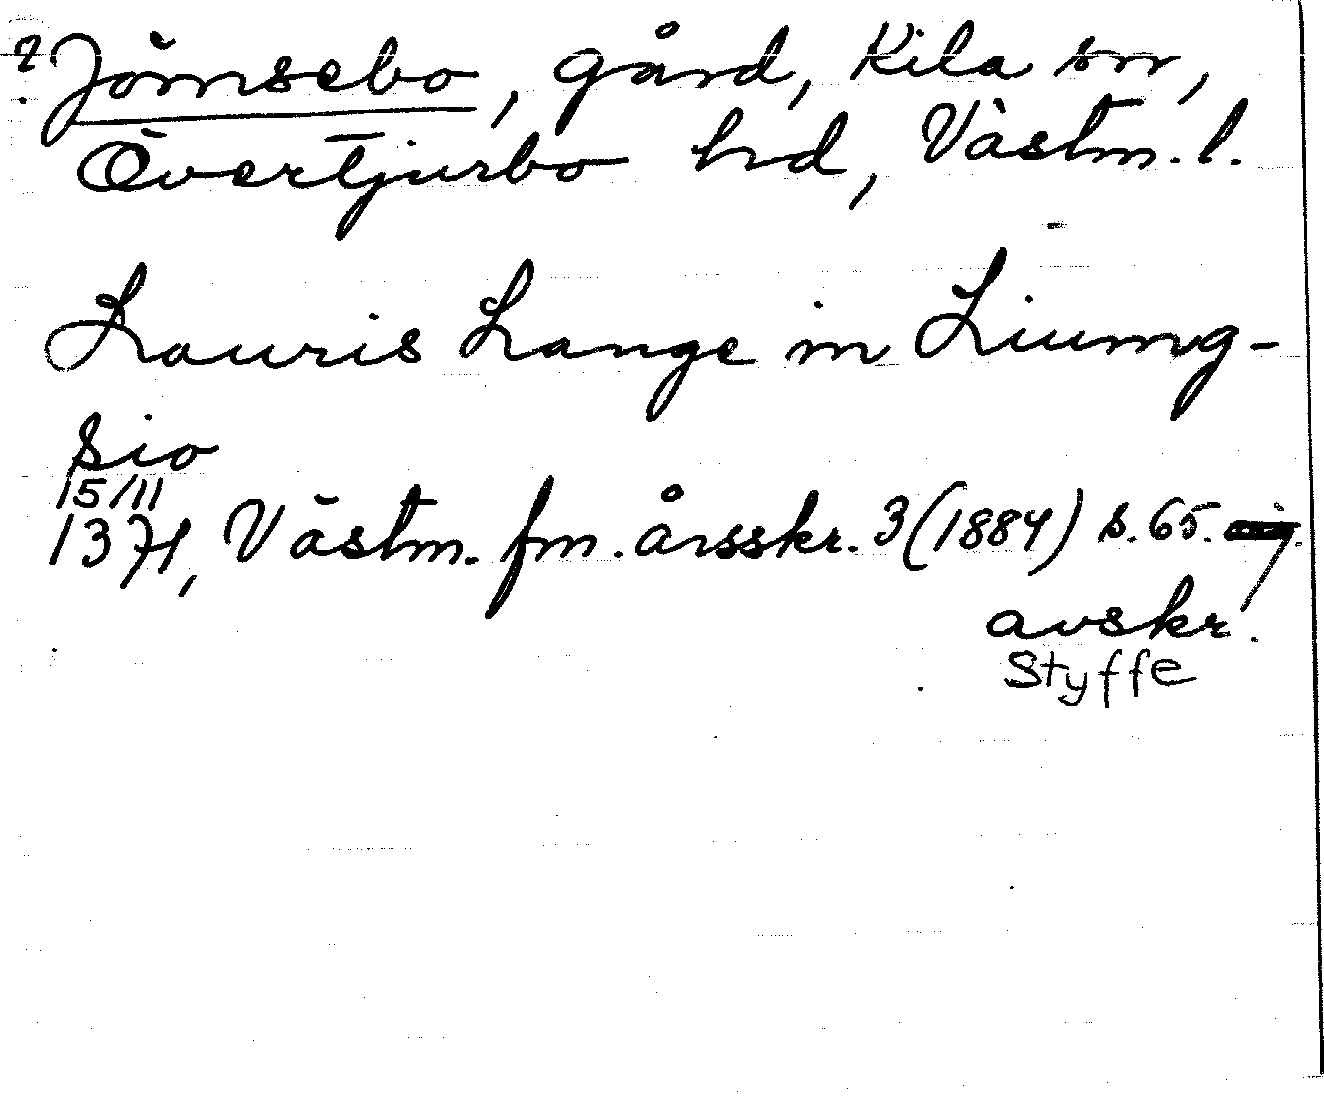 ? Jömsebo, gård, Kila sn,
Övertjurbo hd, Västm. l.
Lauris Lange in Liumg-
sio
15/11
1371, Västm. fm. årsskr. 3 (1884) s. 65.
avskr.
Styffe